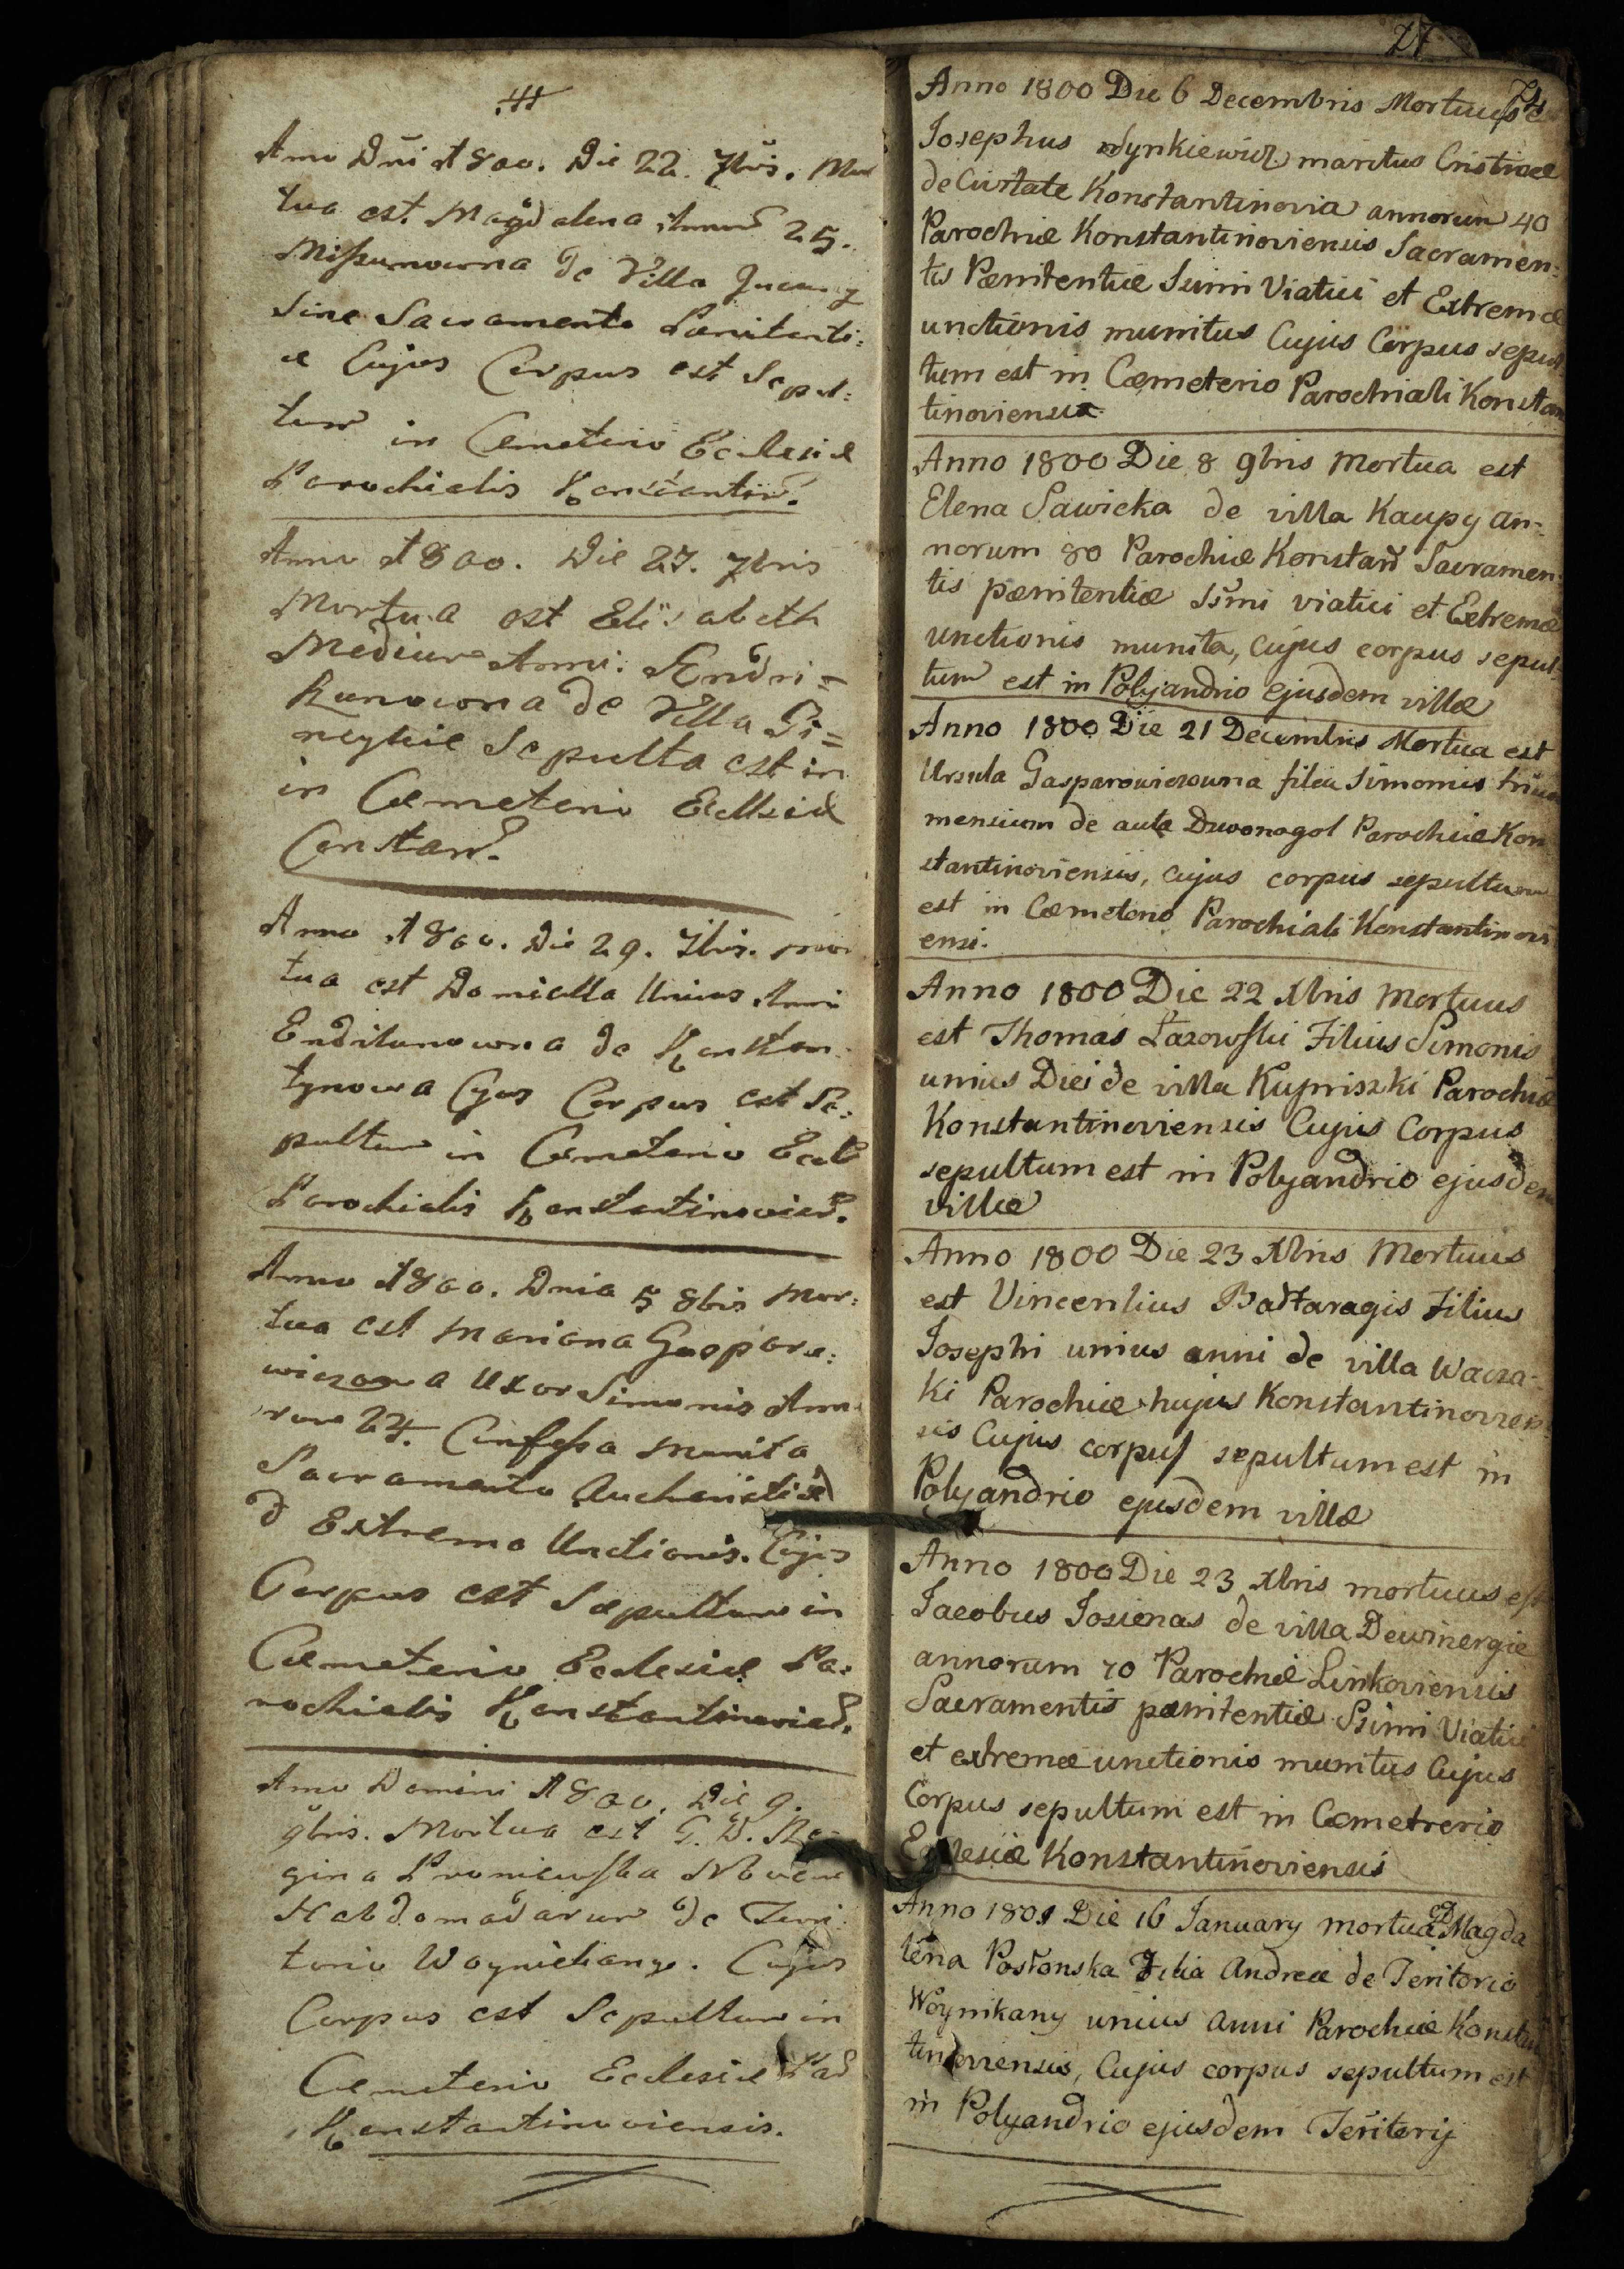 Anno Dni 1800. Die 22. 7bris. Mor
tua est Magdalena Annor 25.
de Villa
Sine Sacramento Pœnitenti:
æ Cujus Corpus est Sepul:
tum in Cemeterio Ecclesiæ
Parochialis Konstantin.
Anno 1800. Die 27. 7bris
Mortua est Elisabeth
Medium Anni:
de Villa
Sepulta est in
in Cœmeterio Ecclesiæ
Constan.
Anno 1800. Die 29. 7bris. mor
tua est Daniella Unius Anni
de Konstan:
tynowa Cujus Corpus est Se:
pultum in Cemeterio Eccl
Parochialis Konstantinovien.
Anno 1800. Dnia 5 8bis Mor:
tua est Mariana Gaspara:
wiczowa Uxor Simonis Anno
rum 24. Confessa Munita
Sacramento Aucharistiæ
Extrema Unctionis. Cujus
Corpus est Sæpultum in
Cœmeterio Ecclesiæ Pa:
rochialis Konstantinovien.
Anno Domini 1800. Die 9.
9bris. Mortua est G. D. Re
gina Proniewska Novem
Hebdomadarum de Terri
torio Woynikany. Cujus
Corpus est Sepultum in
Cemeterio Ecclesiæ Par
Konstantinoviensis.
27
Anno 1800 Die 6 Decembris Mortuus e
Josephus maritus Cristinæ
de Civitate Konstantinovia annorum 40
Parochiæ Konstantinoviensis Sacramen:
tis Pænitentiæ Sumi Viatici et Extremæ
unctionis munitus Cujus Corpus sepul
tum est in Cœmeterio Parochiali Konstan
tinoviensi
Anno 1800 Die 8 9bris Mortua est
Elena Sawicka de villa Kaupy an:
norum 80 Parochiæ Konstan Sacramen:
tis pænitentiæ Ssmi viatici et Extremæ
unctionis munita, cujus corpus sepul
tum est in Polyandrio ejusdem villæ
Anno 1800 Die 21 Decembris Mortua est
Ursula Gasparowiczowna filia Simonis trium
mensium de aula Dwonogol Parochiæ Kon
stantinoviensis, cujus corpus sepultum
est in Cœmeterio Parochiali Konstantinovi
ensi.
Anno 1800 Die 22 Xbris Mortuus
est Thomas Łazowski Filius Simonis
unius Diei de villa Kupriszki Parochiæ
Konstantinoviensis Cujus Corpus
sepultum est in Polyandrio ejusdem
villæ
Anno 1800 Die 23 Xbris Mortuus
est Vincentius Baltaragis Filius
Josephi unius anni de villa Wacza-
ki Parochiæ hujus Konstantinovien
sis Cujus corpus sepultum est in
Polyandrio ejusdem villæ
Anno 1800 Die 23 Xbris mortuus est
Jacobus Josienas de villa Dewinergie
annorum 70 Parochiæ Linkoviensis
Sacramentis pœnitentiæ Ssimi Viatici
et extremæ unctionis munitus Cujus
Corpus sepultum est in Cœmetrerio
Ecclesiæ Konstantinoviensis
Anno 1801 Die 16 January mortua Magda
lena Posłonska Filia Andreæ de Teritorio
Woynikany unius anni Parochiæ Konstan
tinoviensis, Cujus corpus sepultum est
in Polyandrio ejusdem Teritorij